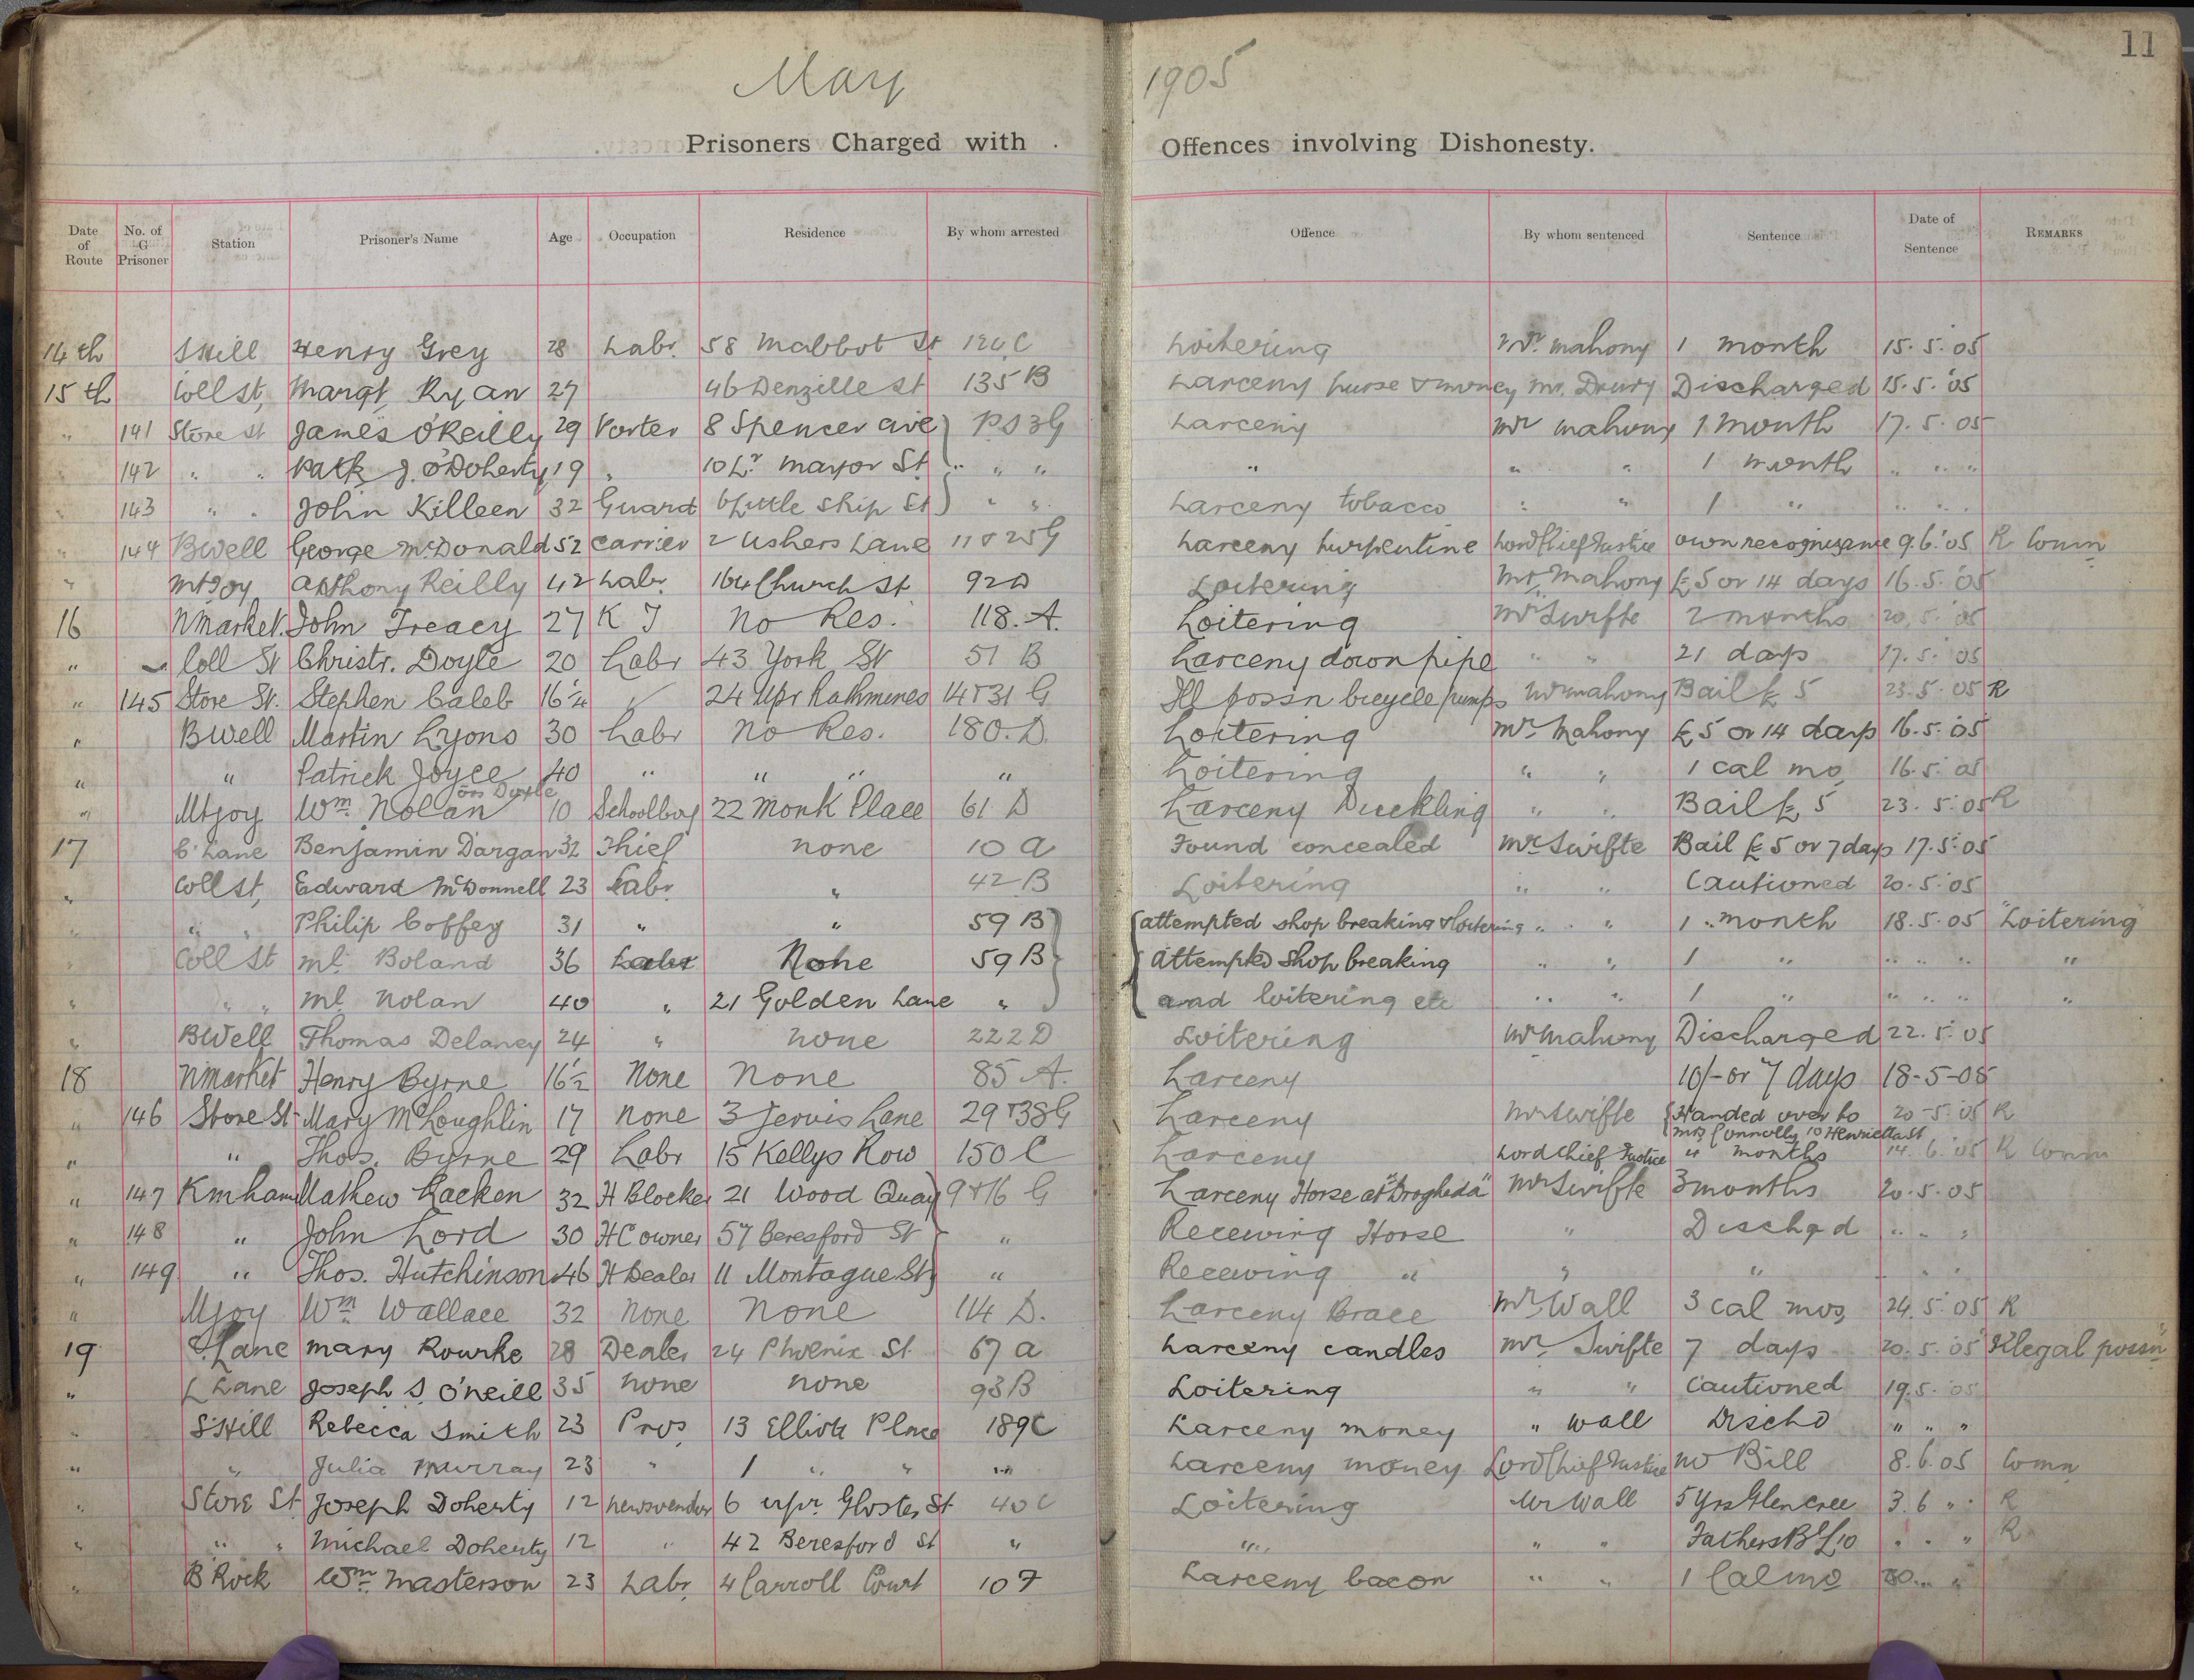 11
May 1905
Prisoners Charged with Offences involving Dishonesty.
Date of Route No. of G Prisoner Station Prisoner's Name Age Occupation Residence By whom arrested Offence By whom sentenced Sentence Date of Sentence REMARKS
14th SHill Henry Grey 28 Labr. 58 Mabbot St 124 C Loitering Mr. Mahony 1 month 15.5.'05
15th Coll St, Margt Ryan 27 46 Denzille St 135 B Larceny purse & money Mr. Drury Discharged 15.5.'05
" 141 Store St James O'Reilly 29 Porter 8 Spencer ave P.S 3G Larceny Mr Mahony 1 month 17.5.05
" 142 " " Patk J. O'Doherty 19 " 10 Lr. Mayor St " " " " " " 1 month " " "
" 143 " " John Killeen 32 Guard 6 Little Ship St " " Larceny tobacco " " 1 " " " "
" 144 BWell George McDonald 52 Carrier 2 Ushers Lane 11 & 25G Larceny turpentine Lord Chief Justice own recognizance 9.6.'05 R Comn
" Mtjoy Anthony Reilly 42 Labr. 164 Church St 92D Loitering Mr. Mahony £5 or 14 days 16.5.'05
16 Nmarket. John Treacy 27 K J No Res. 118.A. Loitering Mr Swifte 2 months 20.5.'05
" Coll St Christr. Doyle 20 Labr 43 York St 51 B Larceny down pipe " " 21 days 17.5.'05
" 145 Store St. Stephen Caleb 16¼ ✓ 24 Upr Rathmines 14 & 31 G Ill possn bicycle pumps Mr Mahony Bail £5 23.5.05 R
" BWell Martin Lyons 30 Labr No Res. 180.D Loitering Mr. Mahony £5 or 14 days 16.5.'05
" " Patrick Joyce 40 " " " " Loitering " " 1 cal mo 16.5.'05
" Mtjoy Wm. Nolan orr Doyle 10 Schoolboy 22 Monk Place 61 D Larceny Duckling " " Bail £5 23.5.05 R
17 C. Lane Benjamin Dargan 32 Thief none 10 a Found concealed Mr Swifte Bail £5 or 7 days 17.5.05
" Coll St, Edward McDonnell 23 Labr. " 42 B Loitering " " Cautioned 20.5.'05
" " " Philip Coffey 31 " " 59 B attempted shop breaking & loitering " " 1 month 18.5.05 "Loitering"
" Coll St Ml. Boland 36 Labr None 59 B Attempted shop breaking " " 1 " " " " "
" " " Ml. Nolan 40 " 21 Golden Lane " and loitering etc " " 1 " " " " "
" BWell Thomas Delaney 24 " none 222D Loitering Mr Mahony Discharged 22.5.05
18 Nmarket Henry Byrne 16½ None None 85 A. Larceny 10/- or 7 days 18-5-05
" 146 Store St Mary McLoughlin 17 none 3 Jervis Lane 29 & 38G Larceny Mr Swifte Handed over to 20-5.'05 R
Mrs Connolly 10 Henrietta St
" " Thos. Byrne 29 Labr 15 Kellys Row 150 C Larceny Lord Chief Justice 4 months 14.6.'05 R Comn
" 147 Kmham Mathew Racken 32 H Blocker 21 Wood Quay 9 & 16 G Larceny Horse at "Drogheda" Mr Swifte 3 months 20.5.05
" 148 " John Lord 30 HC owner 57 Beresford St " Receiving Horse " Dischgd " " "
" 149 " Thos. Hutchinson 46 H Dealer 11 Montague St " Receiving " " " " " "
" Mjoy Wm. Wallace 32 None None 114 D. Larceny Brace Mr Wall 3 cal mos, 24.5.05 R
19 C. Lane Mary Rourke 28 Dealer 24 Phoenix St. 67 a Larceny candles Mr. Swifte 7 days 20.5.05 "Illegal possn"
" C Lane Joseph S. O'Neill 35 none none 93B Loitering " " Cautioned 19.5.'05
" S.Hill Rebecca Smith 23 Pros 13 Elliott Place 189C Larceny money " Wall Dischd " " "
" " Julia Murray 23 " 1 " " " Larceny money Lord Chief Justice No Bill 8.6.05 Comn
" Store St Joseph Doherty 12 newsvendor 6 upr. Gloster St 40 C Loitering Mr Wall 5 yrs Glencree 3.6 " R
" " " Michael Doherty 12 " 42 Beresford St " " " " Fathers Bl £10 " " " R
" B'Rock Wm. Masterson 23 Labr 4 Carroll Court 10 F Larceny bacon " " 1 Cal mo 20 " "